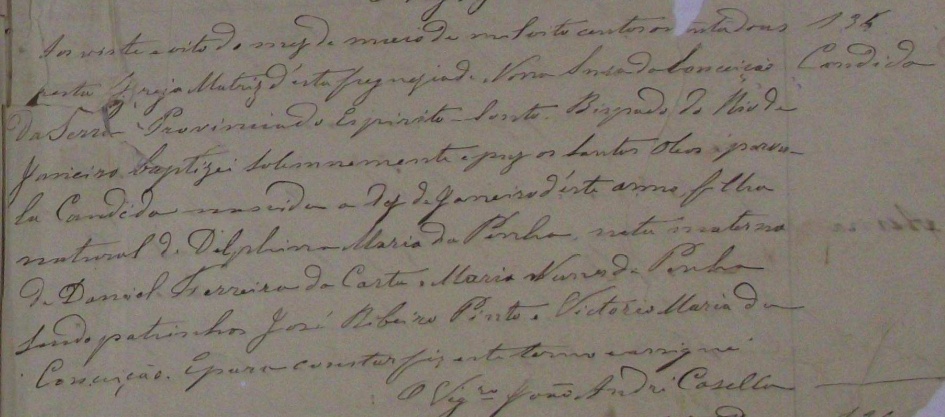 Aos vinte e oito do mez de março de mil oito centos oitenta e dous
nesta Igreja Matriz d'esta freguezia de Nossa Senhora da Conceição
Da Serra Provincia do Espirito-Santo Bispado do Rio de
Janeiro, baptizei solemnemente e puz os Santos Oleos á parvu-
la Candida nascida a de Janeiro d'este anno, filha
natural de Delphina Maria da Penha, neta materna
de Daniel Ferreira da Costa e Maria Nunes da Penha
sendo patrinhos José Ribeiro Pinto e Victoria Maria da
Conceição. E para constar fiz este termo e assignei
O Vigro João André Casella
135
Candida